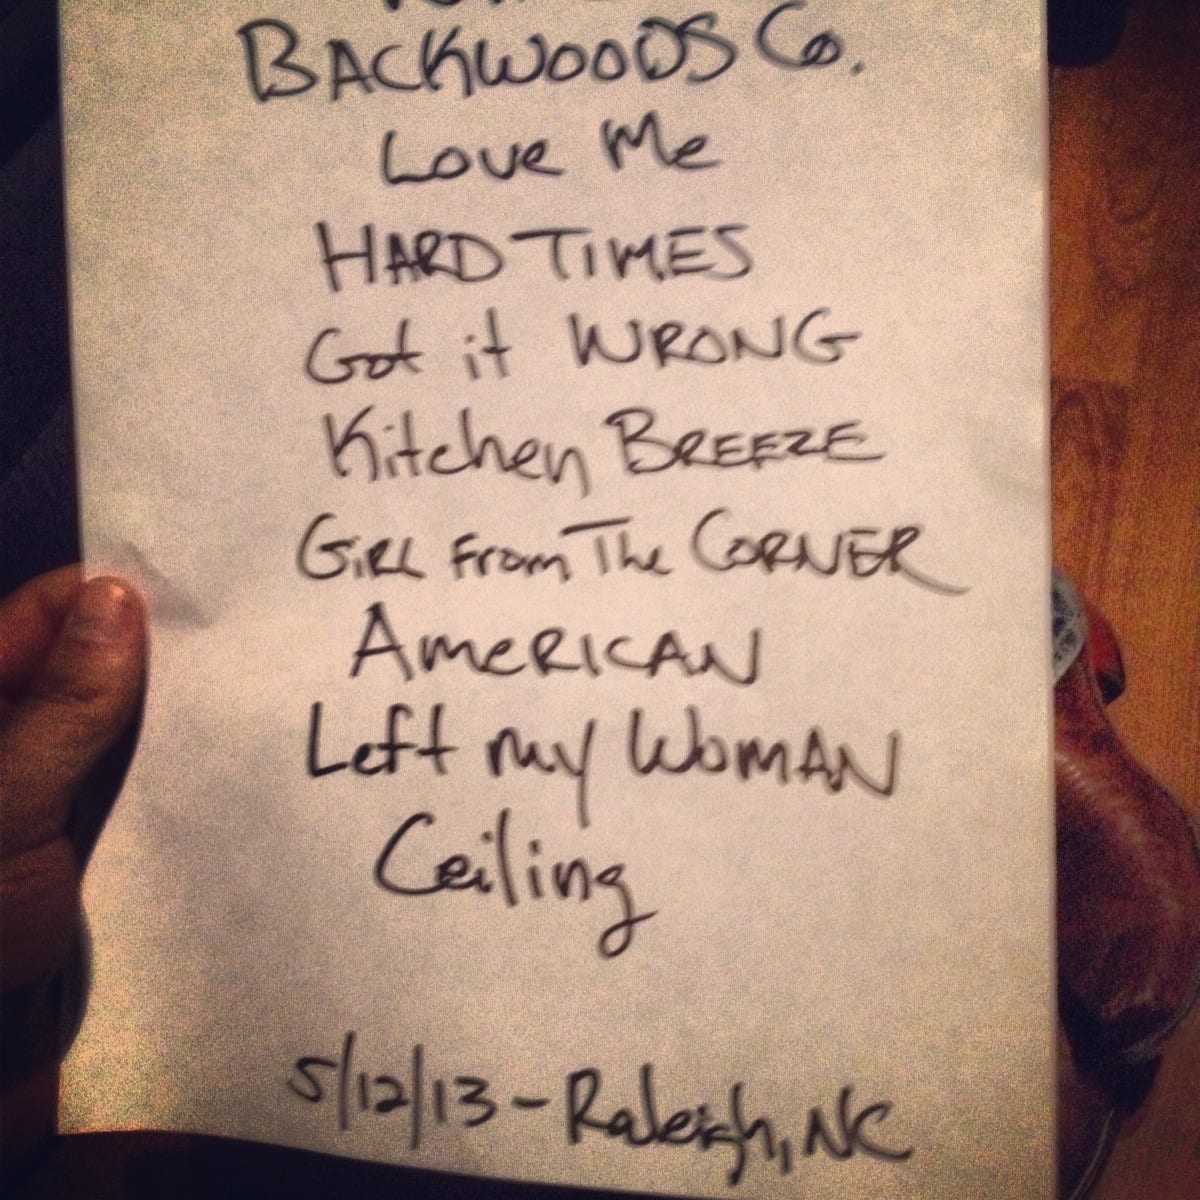 BACKWOODS Co.
Love Me
HARD TIMES
Got it WRONG
Kitchen BREEZE
GiRL From The CORNER
AmeRICAN
Left my WomAN
Ceiling
5/12/13 - Raleigh, NC